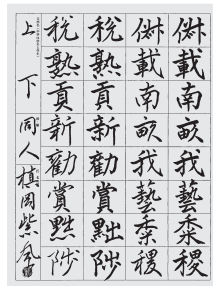 俶載南畝我藝黍稷
俶載南畝我藝黍稷
税熟貢新勸賞黜陟
税熟貢新勸賞黜陟
上下同人